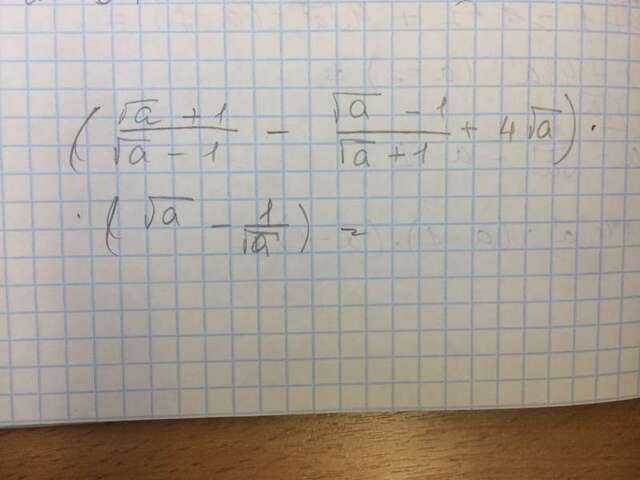 ( (√a + 1)/(√a - 1) - (√a - 1)/(√a + 1) + 4√a ) ·
· ( √a - 1/√a ) =